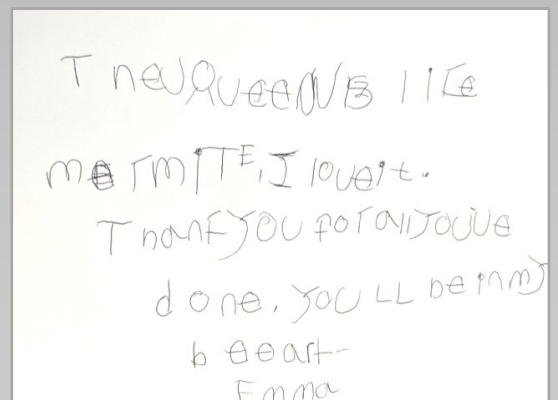 The Queen is like
mermITE, I love it.
Thank you for all you've
done, You'LL be in my
beeart
Emma